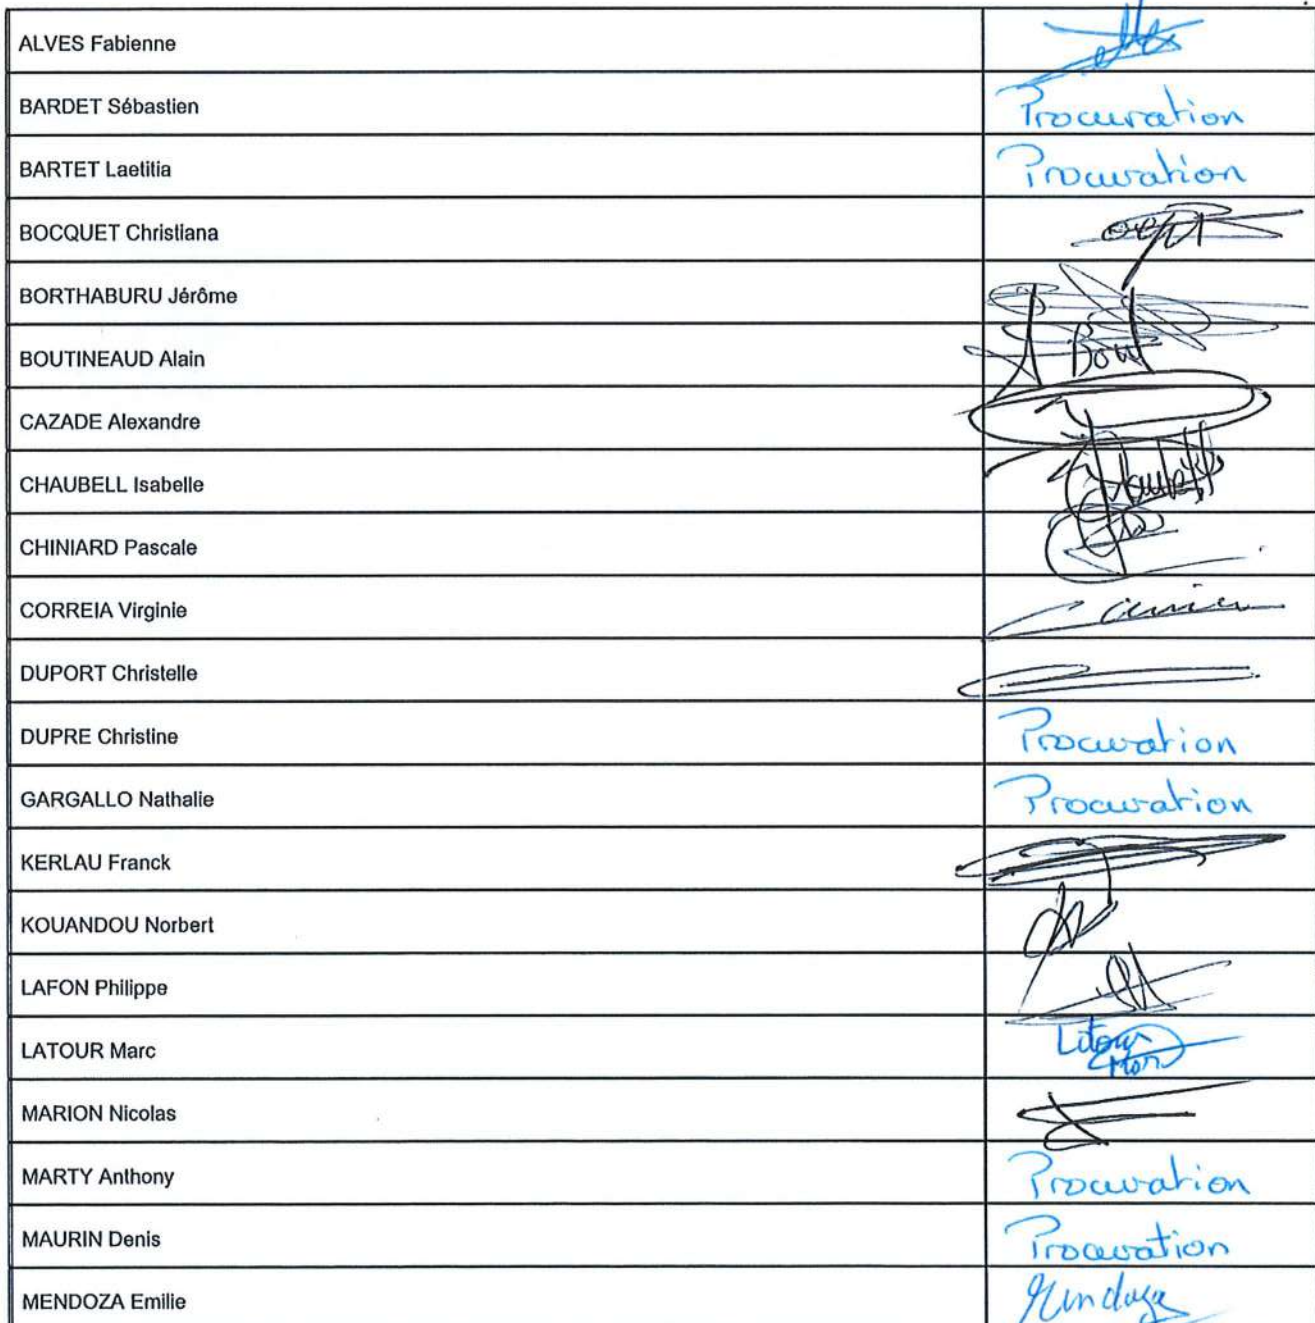 ALVES Fabienne
BARDET Sébastien Procuration
BARTET Laetitia Procuration
BOCQUET Christiana
BORTHABURU Jérôme
BOUTINEAUD Alain
CAZADE Alexandre
CHAUBELL Isabelle
CHINIARD Pascale
CORREIA Virginie
DUPORT Christelle
DUPRE Christine Procuration
GARGALLO Nathalie Procuration
KERLAU Franck
KOUANDOU Norbert
LAFON Philippe
LATOUR Marc Latour
MARION Nicolas
MARTY Anthony Procuration
MAURIN Denis Procuration
MENDOZA Emilie